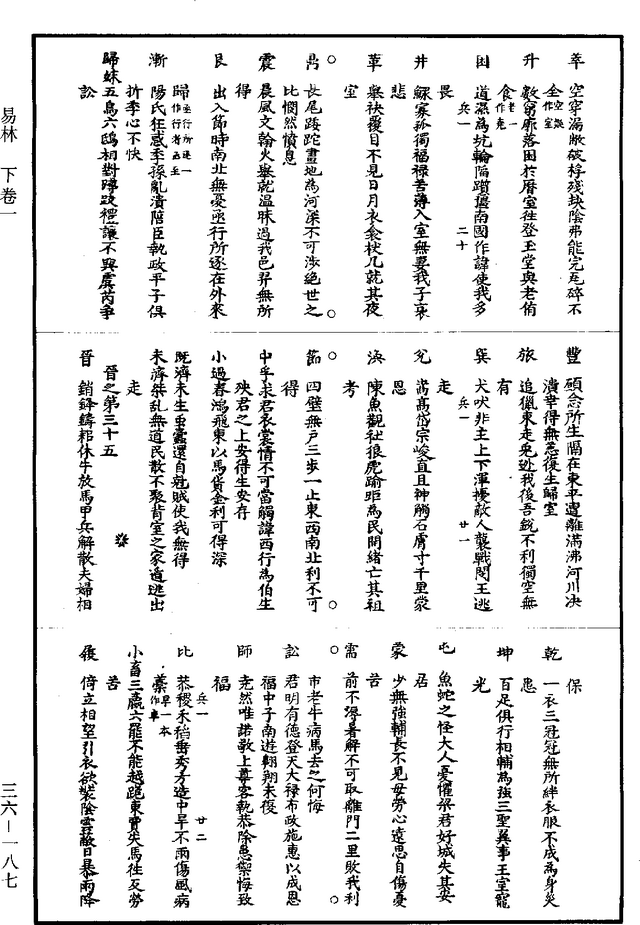 易林　下卷一
萃　空穿漏敝破桴殘缺陰弗能完瓦碎不
全
升　數窮廓落困於曆室往登玉堂與老侑
食
困　道濕為坑輪陷躓南國作諱使我多
畏　兵一　二十
井　鰥寡孤獨福祿苦薄入室無妻我子哀
悲
革　舉袂覆目不見日月衣衾杖几就其夜
室
長尾踒跎畫地為河深不可涉絕世之
比惘然憤息
震　晨風文翰火舉就溫昧過我邑羿無所
得
艮　出入節時南北無憂亟行所逐在外來
歸
漸　陽氏狂惑季孫亂潰陪臣執政平子俱
折李心不快
歸妹五烏六鴟相對蹲跂禮讓不興虞芮爭
訟
豐　碩念所生隔在東平遭離滿沸河川决
潰幸得無恙復生歸室
旅　追獵東走兔逊我後吾銳不利獨空無
有　兵一　廿一
巽　犬吠非主上下渾擾敵人襲戰閔王逃
走
兌　嵩高岱宗峻直且神觸石膚寸千里蒙
恩
渙　陳魚觀社很虎踰距為民開緒亡其祖
考
節　四壁無戶三步一止東西南北利不可
得
中孚求君衣裳情不可當觸諱西行為伯生
殃君之上安得生安存
小過春鴻飛東以馬貨金利可得深
既濟未生蟲蠹還自剋賊使我無得
未濟桀亂無道民散不聚背室之家逭逃出
走
晉之第三十五
晉　銷鋒鑄耜休牛放馬甲兵解散夫婦相
保
乾　一衣三冠冠無所絆衣服不成為身災
患
坤　百足俱行相輔為強三聖異事王室寵
光
屯　魚蛇之怪大人憂懼梁君好城失其安
居
蒙　少無強輔長不見母勞心遠思自傷憂
苦
需　前不得暑解不可取離門二里敗我利
市老牛病馬去之何悔
訟　君明有德登天大祿布政施惠以成恩
福中子南遊翱翔未復
師　堯然唯諾敬上尊客執恭除患禦侮致
福　兵一　廿二
比　黍稷禾稻垂秀方造中旱不雨傷風病
藁
小畜三贏六罷不能越跪東賈失馬往反勞
苦
履　倚立相望引衣欲裝陰雲蔽日暴雨降
三六—一八七